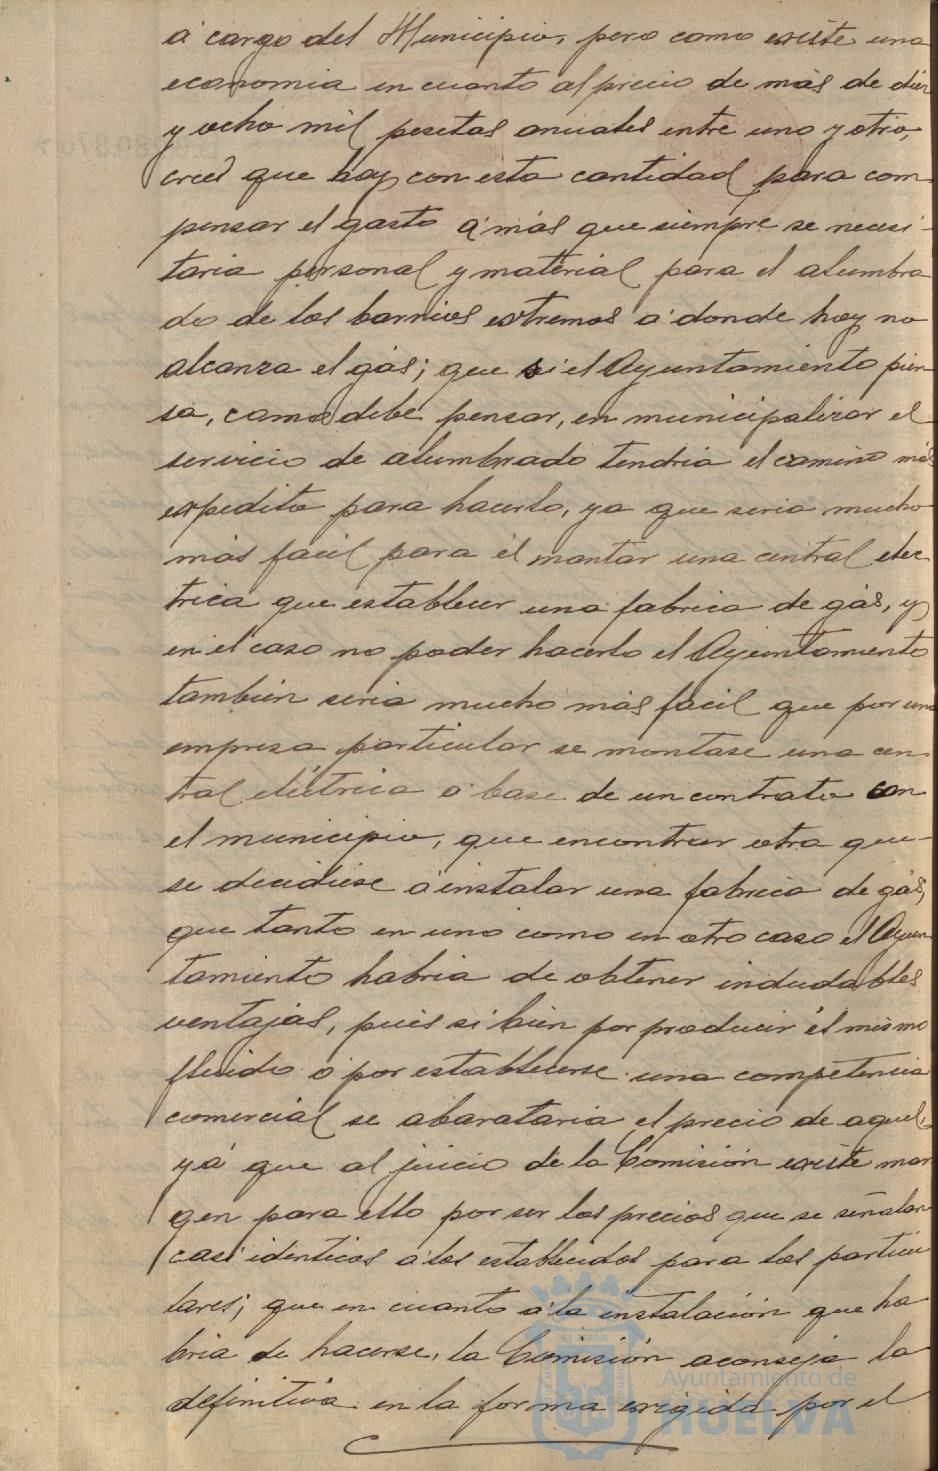 á cargo del Municipio, pero como existe una
economia en cuanto al precio de más de diez
y ocho mil pesetas anuales entre uno y otro,
creé que hay con esta cantidad para com
pensar el gasto á más que siempre se necesi-
taria personal y material para el alumbra
do de los barrios extremos á donde hoy no
alcanza el gás; que si el Ayuntamiento pien
sa, como debe pensar, en municipalizar el
servicio de alumbrado tendria el camino más
expedito para hacerlo, ya que seria mucho
más facil para él montar una central elec
trica que establecer una fabrica de gás, y
en el caso no poder hacerlo el Ayuntamiento
tambien seria mucho más facil que por una
empresa particular se montase una cen
tral eléctrica á base de un contrato con
el municipio, que encontrar otra que-
se decidiese á instalar una fabrica de gás;
que tanto en uno como en otro caso el Ayun
tamiento habria de obtener indudables
ventajas, pués si bien por producir él mismo
fluido ó por establecerse una competencia
comercial se abarataria el precio de aquel,
yá que al juicio de la Comisión existe mar
gen para ello por ser los precios que se señalan
casi identicos á los establecidos para los particu
lares; que en cuanto á la instalación que ha
bria de hacerse, la Comisión aconseja la
definitiva en la forma exigida por el
Ayuntamiento de
HUELVA